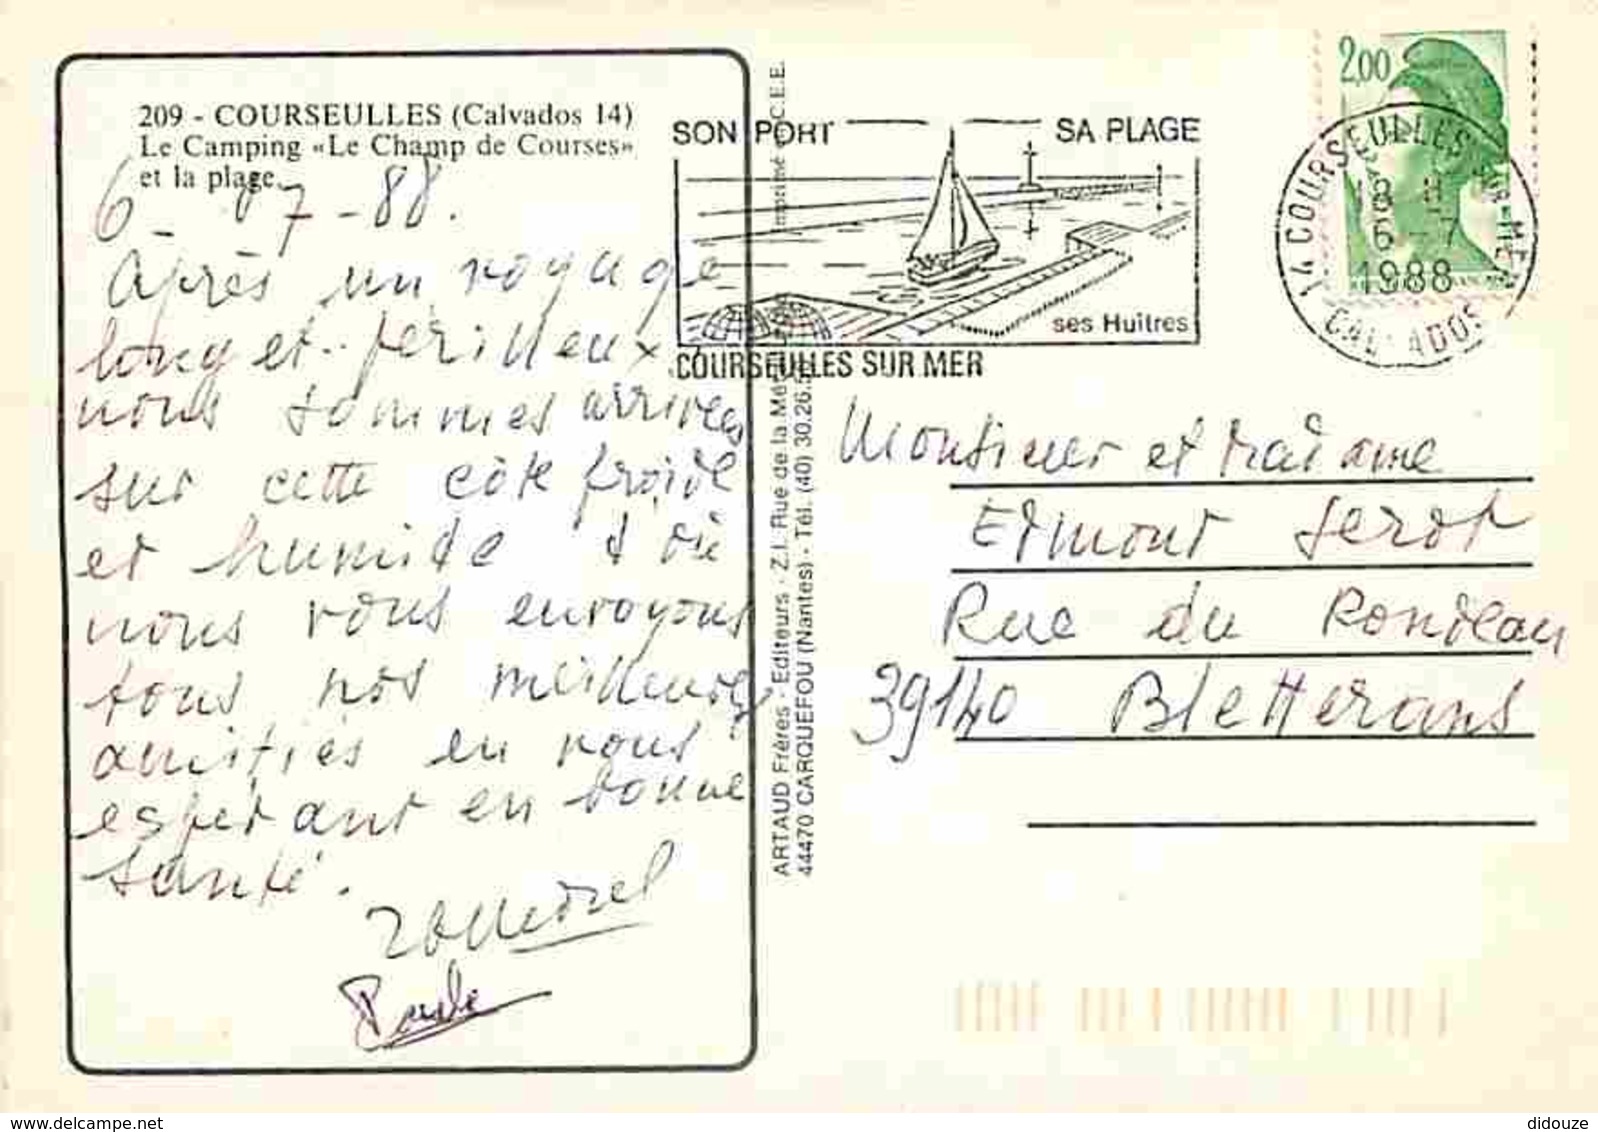 209 - COURSEULLES (Calvados 14)
Le Camping «Le Champ de Courses»
et la plage.
6 - 07 - 88.
Après un voyage
long et périlleux
nous sommes arrivés
sur cette côte froide
et humide d'où
nous vous envoyons
tous nos meilleures
amitiés en vous
espérant en bonne
santé.
Paule
Imprimé C.E.E.
ARTAUD Frères - Editeurs - Z.I. Rue de la
44470 CARQUEFOU (Nantes) - Tél. (40) 30.26.
SON PORT SA PLAGE
ses Huîtres
COURSEULLES SUR MER
2,00
14 COURSEULLES-SUR-MER
18 H
6 - 7
1988
CALVADOS
Monsieur et Madame
Edmond Serot
Rue du Rondeau
39140 Bletterans
didouze